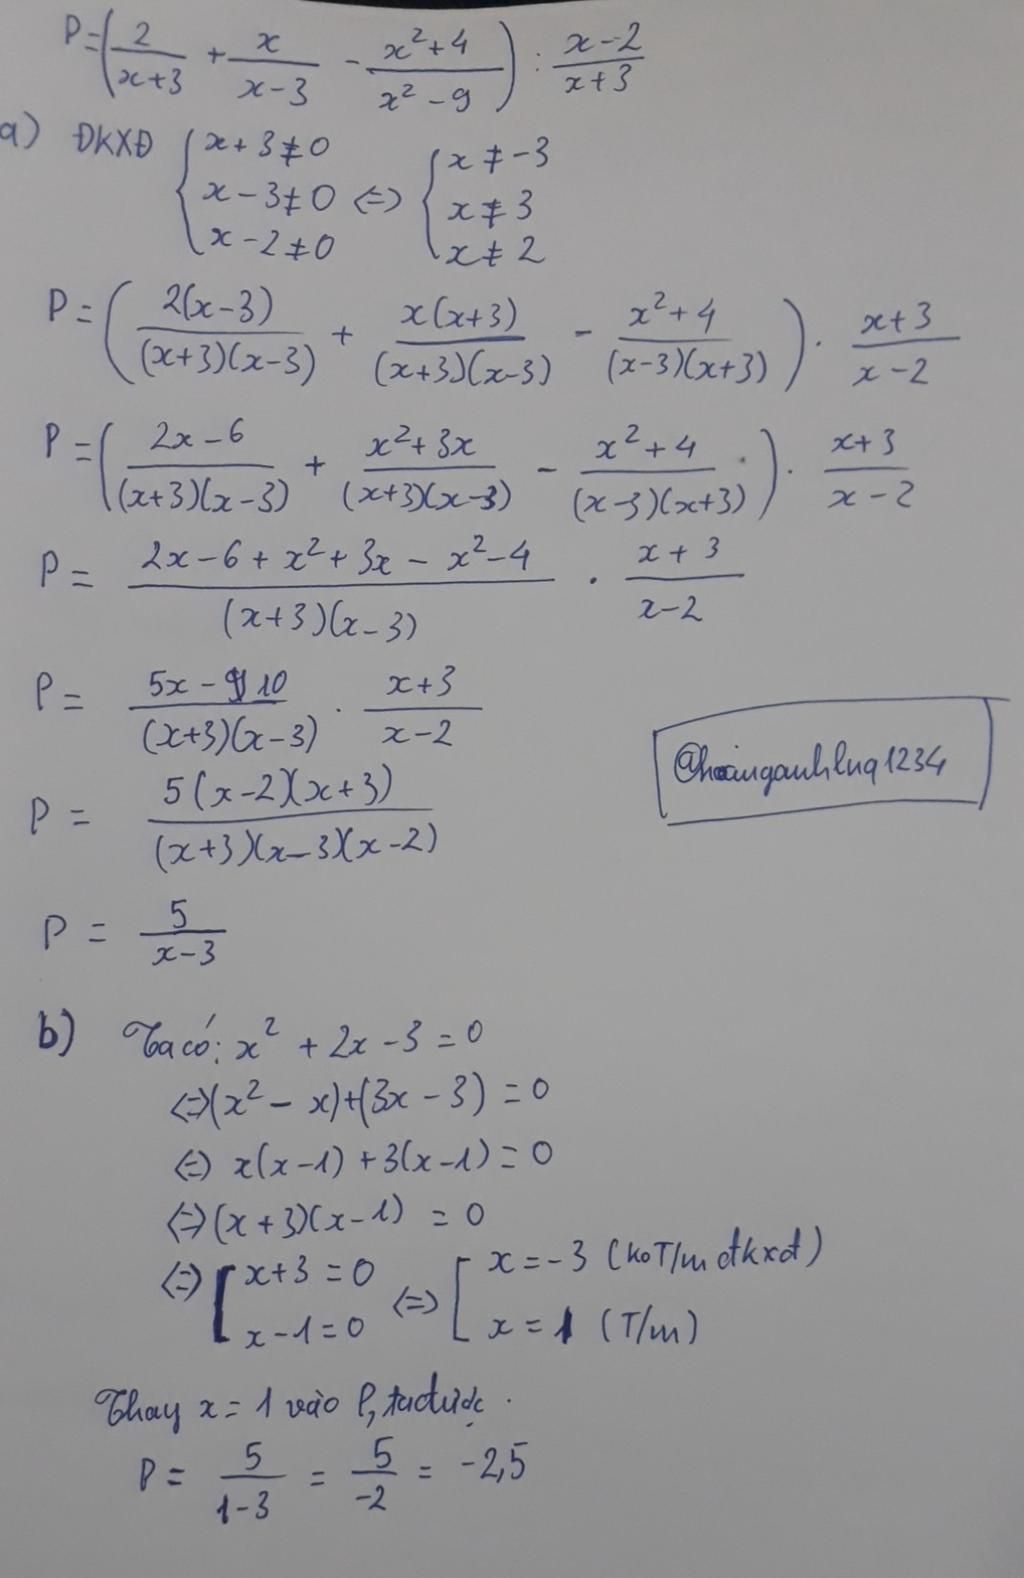 P = (2/(x+3) + x/(x-3) - (x²+4)/(x²-9)) : (x-2)/(x+3)
a) ĐKXĐ { x+3≠0; x-3≠0; x-2≠0 <=> { x≠-3; x≠3; x≠2
P = (2(x-3)/((x+3)(x-3)) + x(x+3)/((x+3)(x-3)) - (x²+4)/((x-3)(x+3))) . (x+3)/(x-2)
P = ((2x-6)/((x+3)(x-3)) + (x²+3x)/((x+3)(x-3)) - (x²+4)/((x-3)(x+3))) . (x+3)/(x-2)
P = (2x-6+x²+3x-x²-4)/((x+3)(x-3)) . (x+3)/(x-2)
P = (5x-10)/((x+3)(x-3)) . (x+3)/(x-2)
@hoanganhlnq1234
P = 5(x-2)(x+3)/((x+3)(x-3)(x-2))
P = 5/(x-3)
b) Ta có: x² + 2x - 3 = 0
<=> (x² - x)+(3x - 3) = 0
<=> x(x-1) + 3(x-1) = 0
<=> (x+3)(x-1) = 0
<=> [ x+3 = 0; x-1 = 0 <=> [ x = -3 (koT/m đkxđ); x = 1 (T/m)
Thay x = 1 vào P, ta được.
P = 5/(1-3) = 5/-2 = -2,5